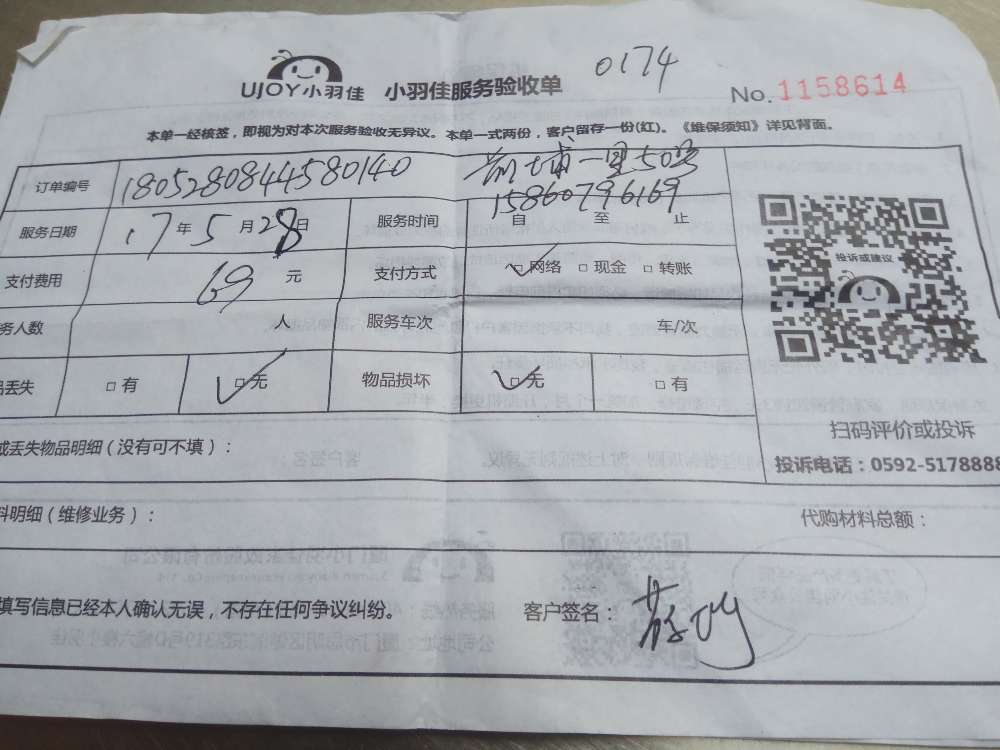 UJOY小羽佳 小羽佳服务验收单 0174
No. 1158614
本单一经核签，即视为对本次服务验收无异议。本单一式两份，客户留存一份(红)。《维保须知》详见背面。
订单编号 1805280844580140 前埔一里50号
15860796169
服务日期 17年5月28日 服务时间 自 至 止
支付费用 69 元 支付方式 □网络 □现金 □转账
务人数 人 服务车次 车/次
品丢失 □有 □无 物品损坏 □无 □有
投诉或建议
扫码评价或投诉
投诉电话：0592-5178888
或丢失物品明细（没有可不填）：
料明细（维修业务）： 代购材料总额：
填写信息已经本人确认无误，不存在任何争议纠纷。 客户签名：